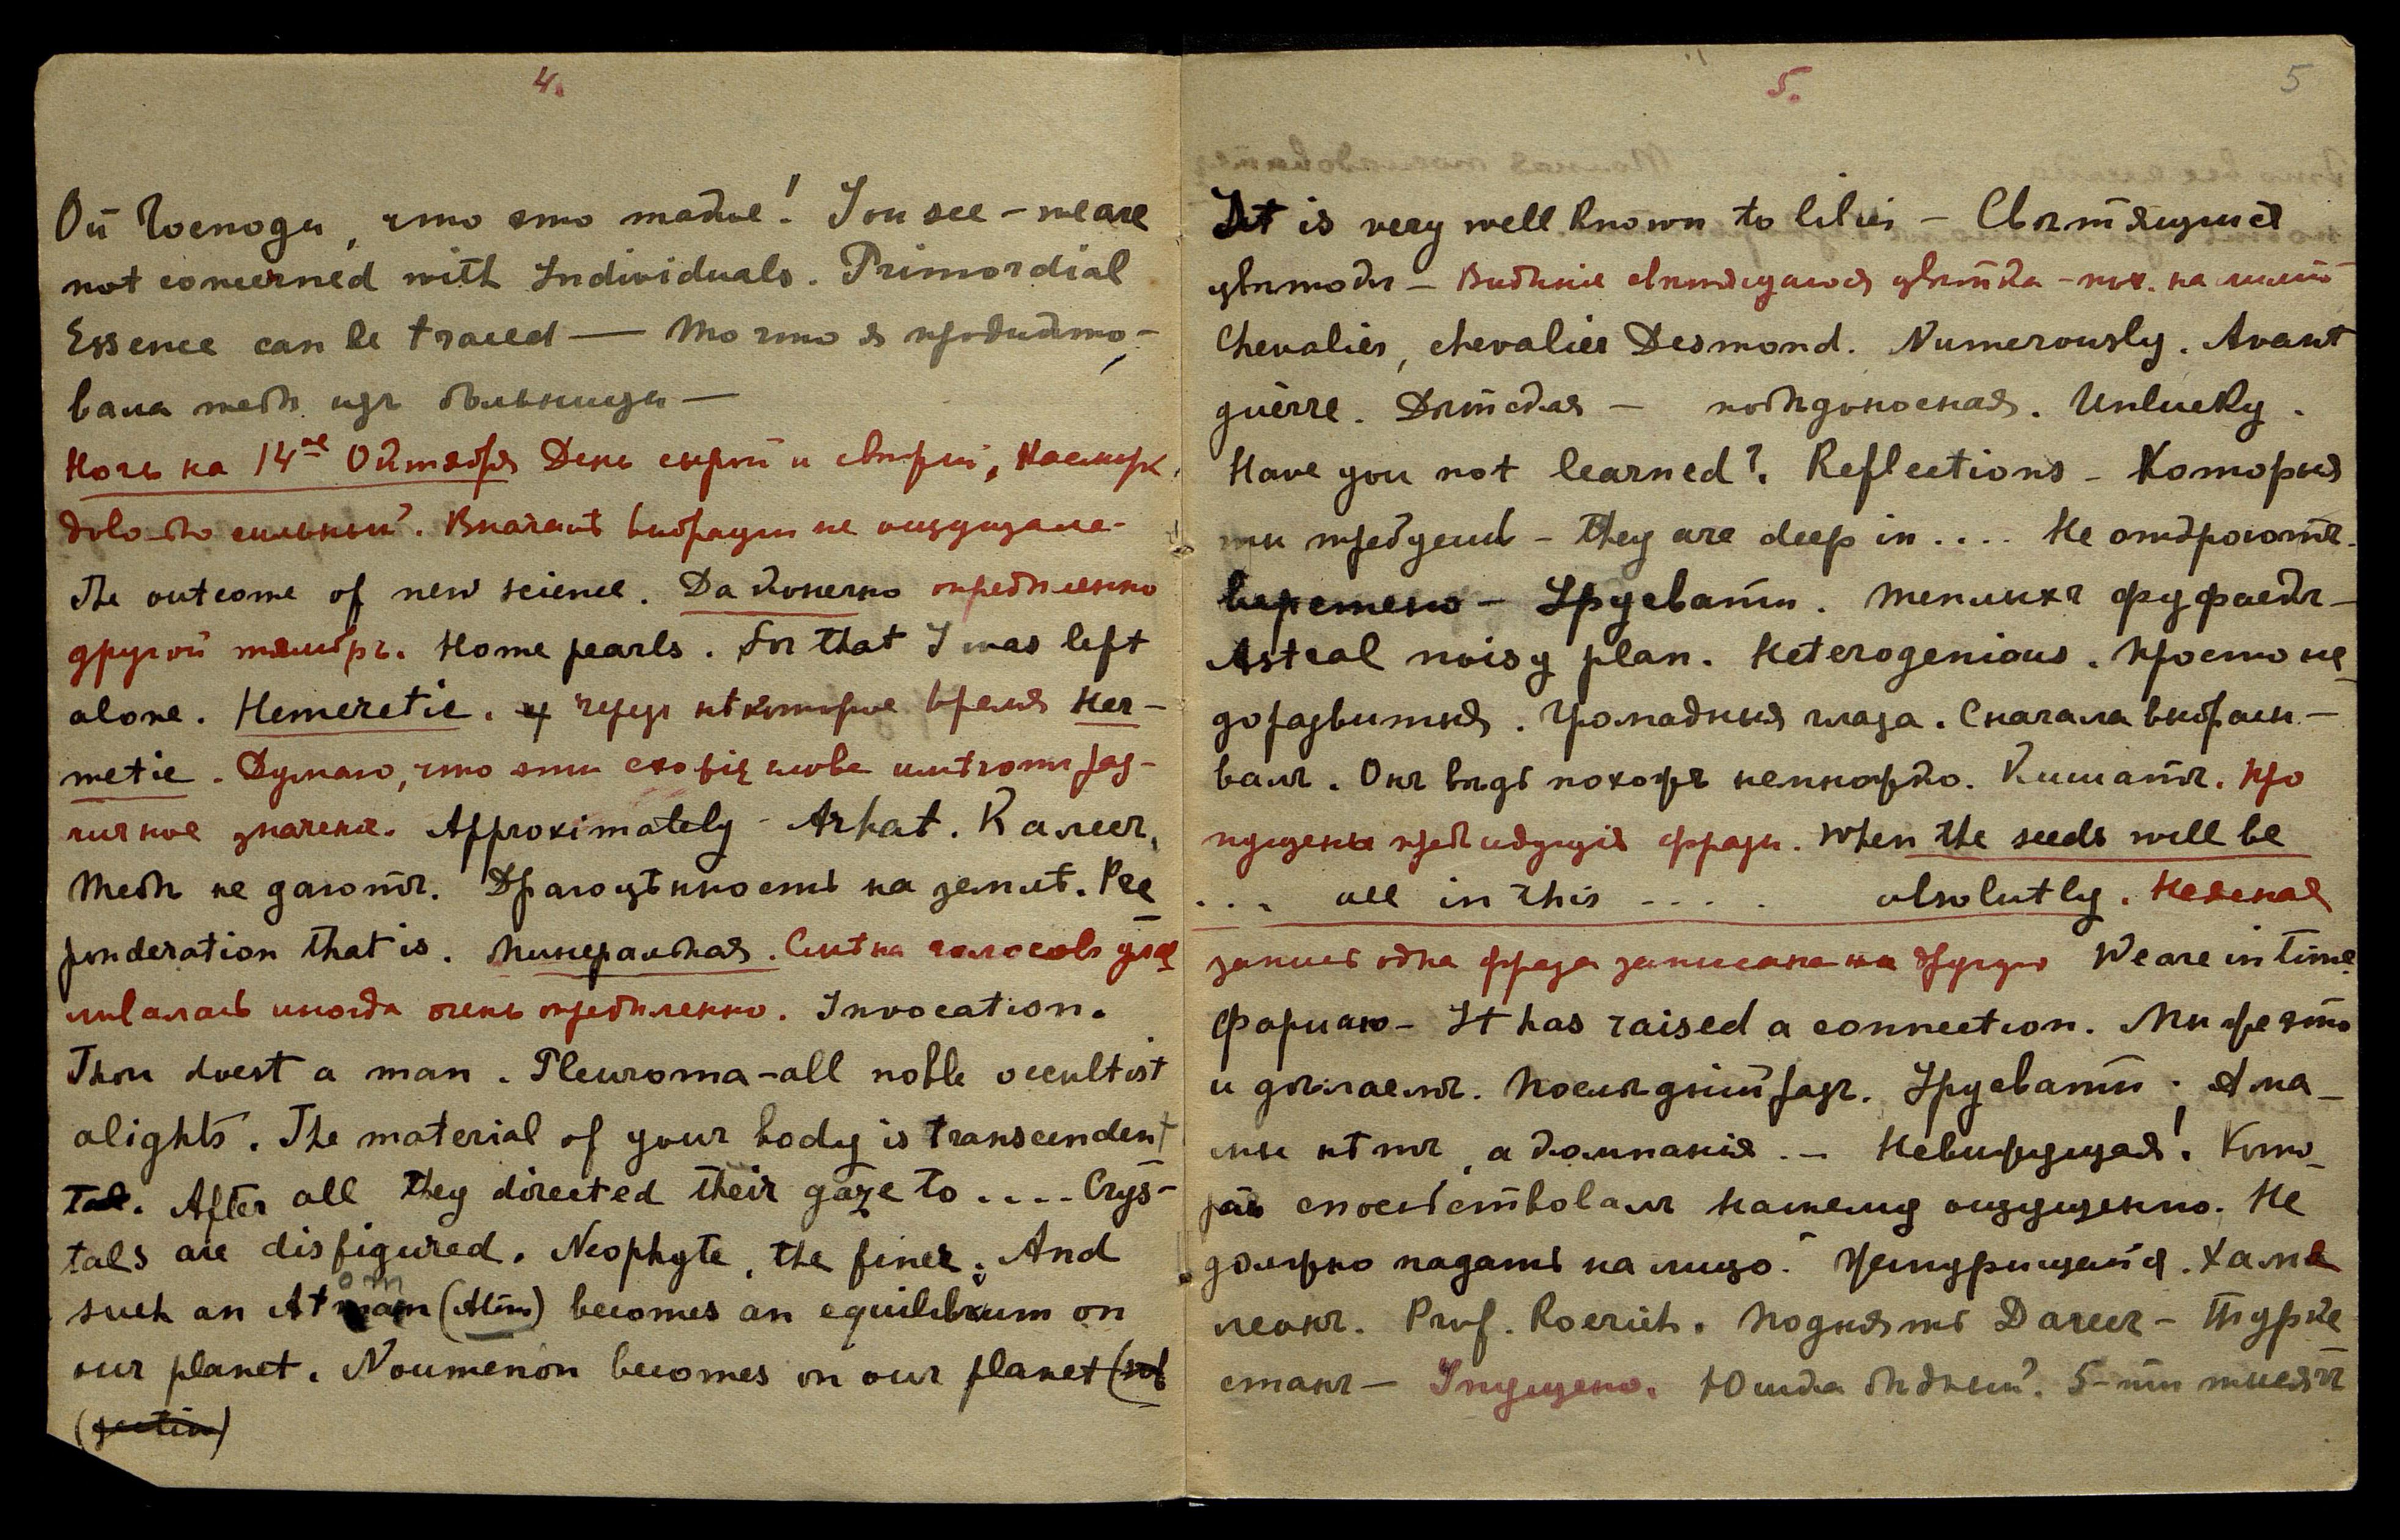 4.
Ой Господи, что это такое! You see – we are
not concerned with Individuals. Primordial
Essence can be traced — то что я продикто-
вала тебѣ изъ больницы —
Ночь на 14ое Октября День сырой и Насморк
довольно сильный. Вначалѣ вибрации не ощущала.
The outcome of new science. Да конечно опредѣленно
другой тэмбръ. Home pearls. For that I was left
alone. Hemeretic. через нѣкоторое время Her-
metic. Думаю, что эти слова имѣютъ раз-
личное значенiе. Approximately – Arhat. Калеч.
Тебѣ не даютъ. Драгоцѣнность на землѣ. Pre
ponderation that is. Минеральная. Смѣна голосовъ ула
ливалась иногда очень опредѣленно. Invocation.
Thou doest a man. Pleuroma – all noble occultist
alights. The material of your body is transcendent
tal. After all they directed their gaze to .... Crys-
tals are disfigured. Neophyte, the finer. And
om
such an Atmam (Atim) becomes an equilibrium on
our planet. Noumenon becomes on our planet
5.
5
It is very well known to lilies – Свѣтящиеся
цвѣтокъ – Видѣнiе свѣтящагося цвѣтка – пох. на лилiю
Chevalier, chevalier Desmond. Numerously. Avant
guèrre. Дѣтская – побѣдоносная. Unlucky.
Have you not learned?. Reflections – Которыя
ты требуешь – They are deep in .... Не откроютъ.
веретено – Урусвати. теплыхъ фуфаекъ –
Astral noisy plan. Heterogenious. просто не
доразвитыя. Громадныя глаза. Сначала выбрасы-
валъ. Онъ вѣдь похожъ немножко. Кишатъ. про
пущены предыдущiя фразы. When the seeds will be
... all in this .... absolutly. Неясная
запись одна фраза записана на другую We are in time.
Фориаю – It has raised a connection. Мы же это
и дѣлаемъ. Послѣднiй разъ. Урусвати; Ама-
мы нѣтъ, а компанiя. – Невидящая! Кото-
рая способствовалъ нашему ощущенiю. Не
должно падать на лицо. Хаме
леонъ. Prof. Roerich. Поднять Далеч – Турке
станъ – Упущено. Юшка бѣдный. 5-ти тысячъ